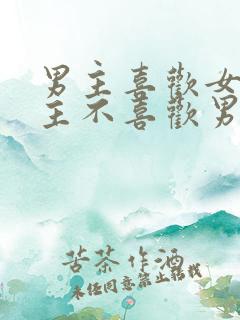 男主喜歡女
主不喜歡男
苦茶作酒
未经同意禁止转载